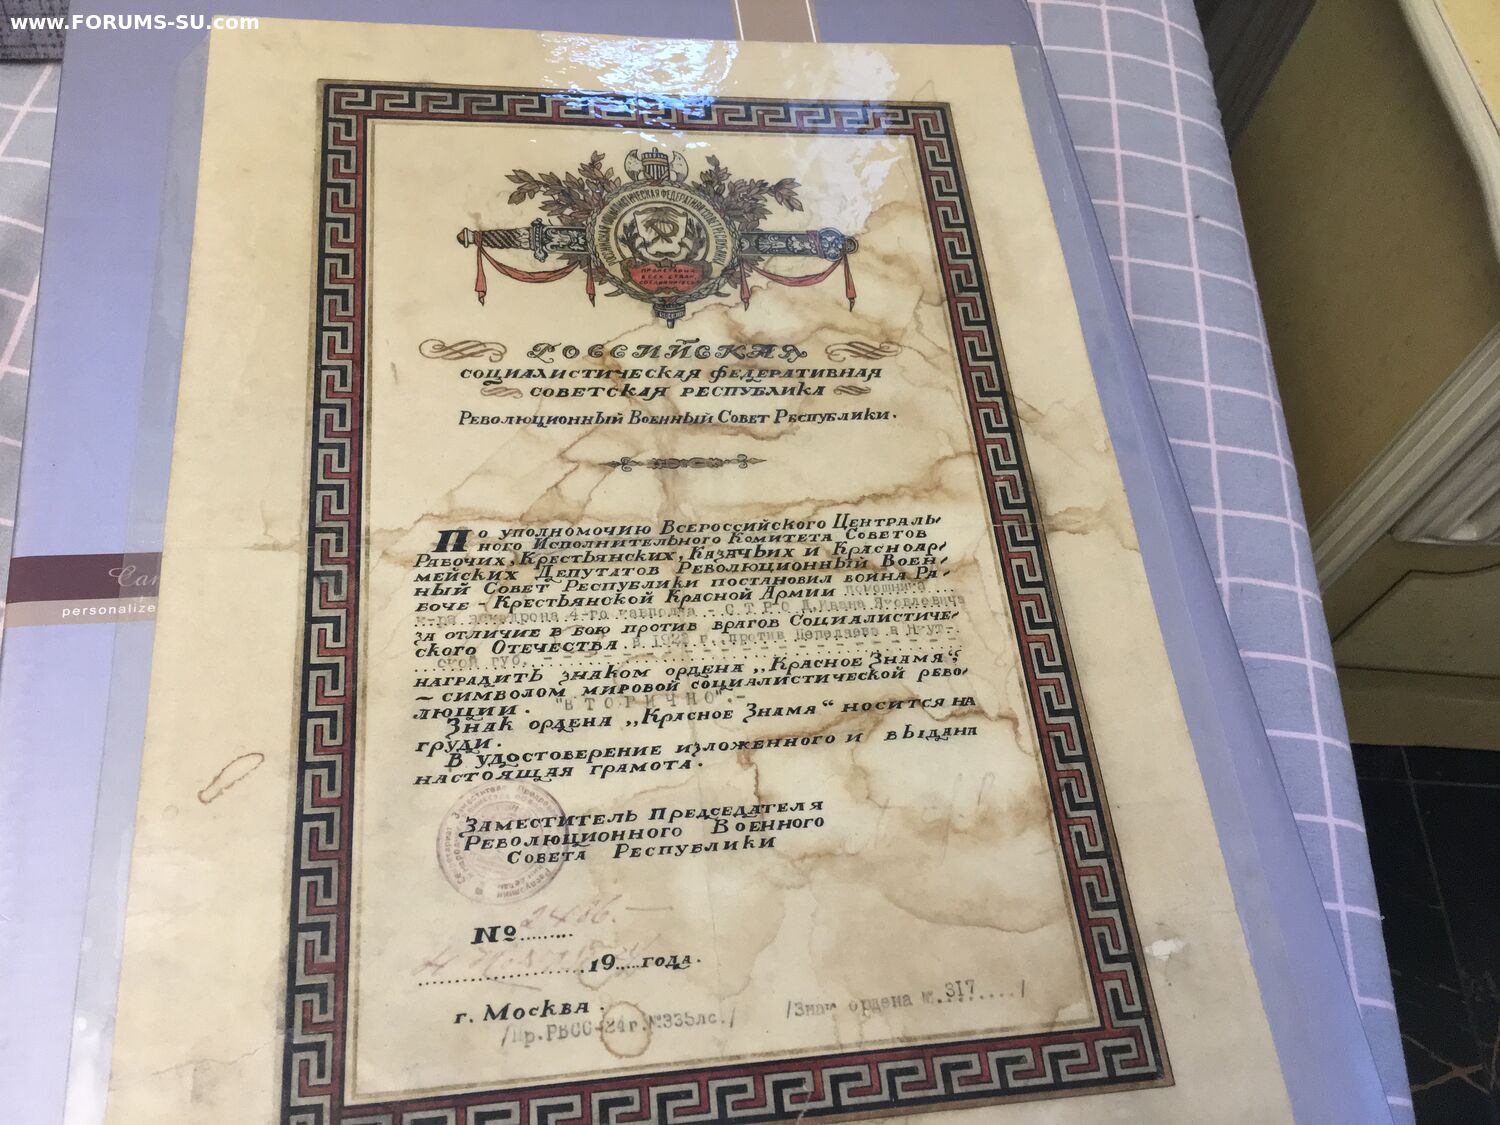 www.FORUMS-SU.com
ПРОЛЕТАРИИ
ВСЕХ СТРАН,
СОЕДИНЯЙТЕСЬ
РОССИЙСКАЯ
СОЦИАЛИСТИЧЕСКАЯ ФЕДЕРАТИВНАЯ
СОВЕТСКАЯ РЕСПУБЛИКА
РЕВОЛЮЦИОННЫЙ ВОЕННЫЙ СОВЕТ РЕСПУБЛИКИ.
По уполномочию Всероссийского Централь-
ного Исполнительного Комитета Советов
Рабочих, Крестьянских, Казачьих и Красноар-
мейских Депутатов Революционный Воен-
ный Совет Республики постановил воина Ра-
боче-Крестьянской Красной Армии помощника
к-ра эскадрона 4-го кавполка - С Т Р О Д Ивана Яковлевича
за отличие в бою против врагов Социалистиче-
ского Отечества. в 1923 г. против Пепеляева в Якут-
ской губ.
наградить знаком ордена „Красное Знамя“,
— символом мировой социалистической рево-
люции. "В Т О Р И Ч Н О".-
Знак ордена „Красное Знамя“ носится на
груди.
В удостоверение изложенного и выдана
настоящая грамота.
Заместитель Председателя
Революционного Военного
Совета Республики
№ 2486.
19 года.
г. Москва.
/Пр.РВСС-24г.№335лс./ /Знак ордена №.317..../
Car
personalize